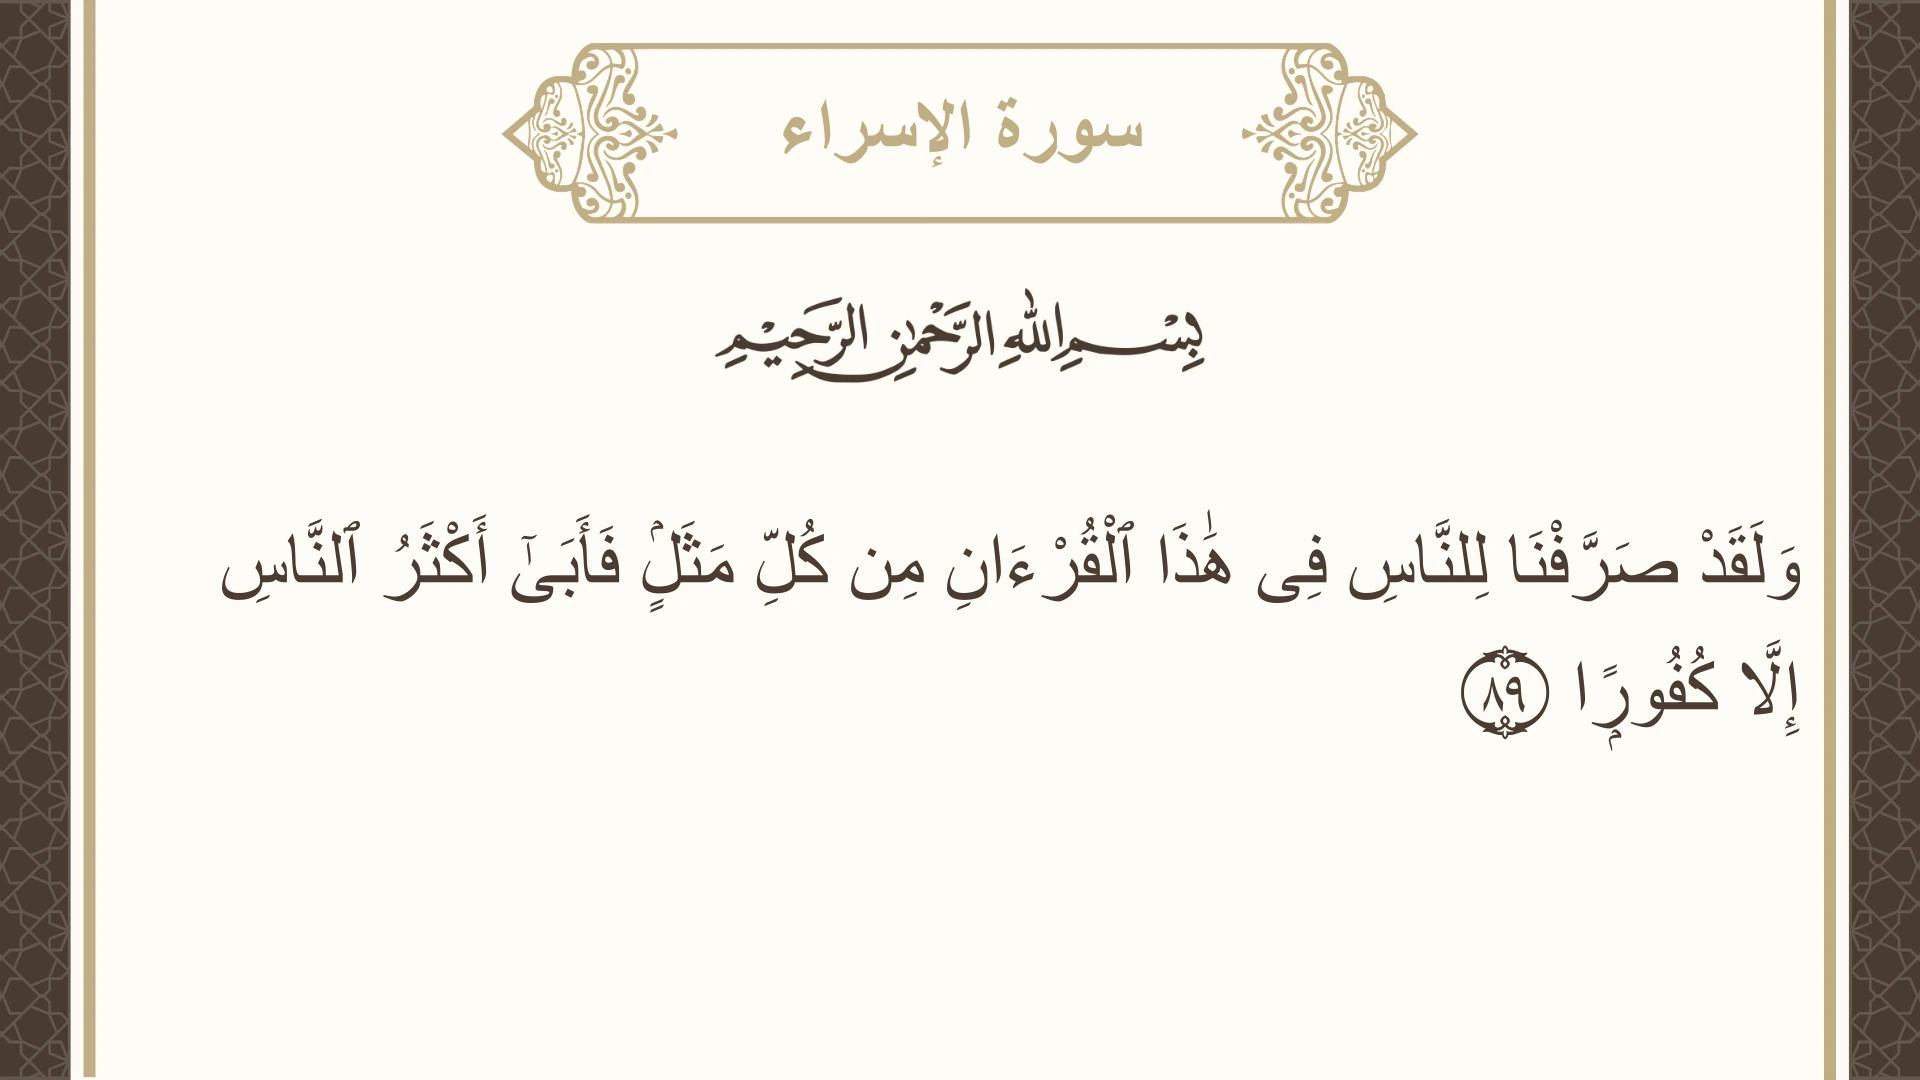 سورة الإسراء
بِسْمِ اللهِ الرَّحْمٰنِ الرَّحِيْمِ
وَلَقَدْ صَرَّفْنَا لِلنَّاسِ فِى هَٰذَا ٱلْقُرْءَانِ مِن كُلِّ مَثَلٍۢ فَأَبَىٰٓ أَكْثَرُ ٱلنَّاسِ
إِلَّا كُفُورًۭا ٨٩